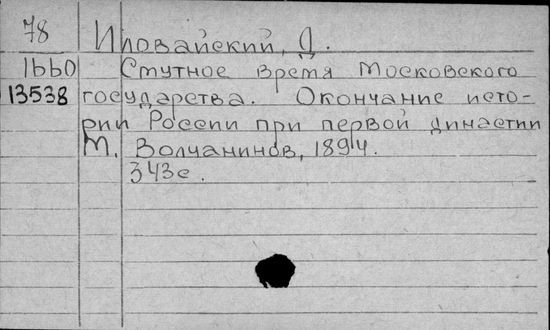 78 Иловайский, Д.
1660 Смутное время Московского
13538 государства. Окончание исто-
рии России при первой династии
М. Волчанинов, 1894.
343с.